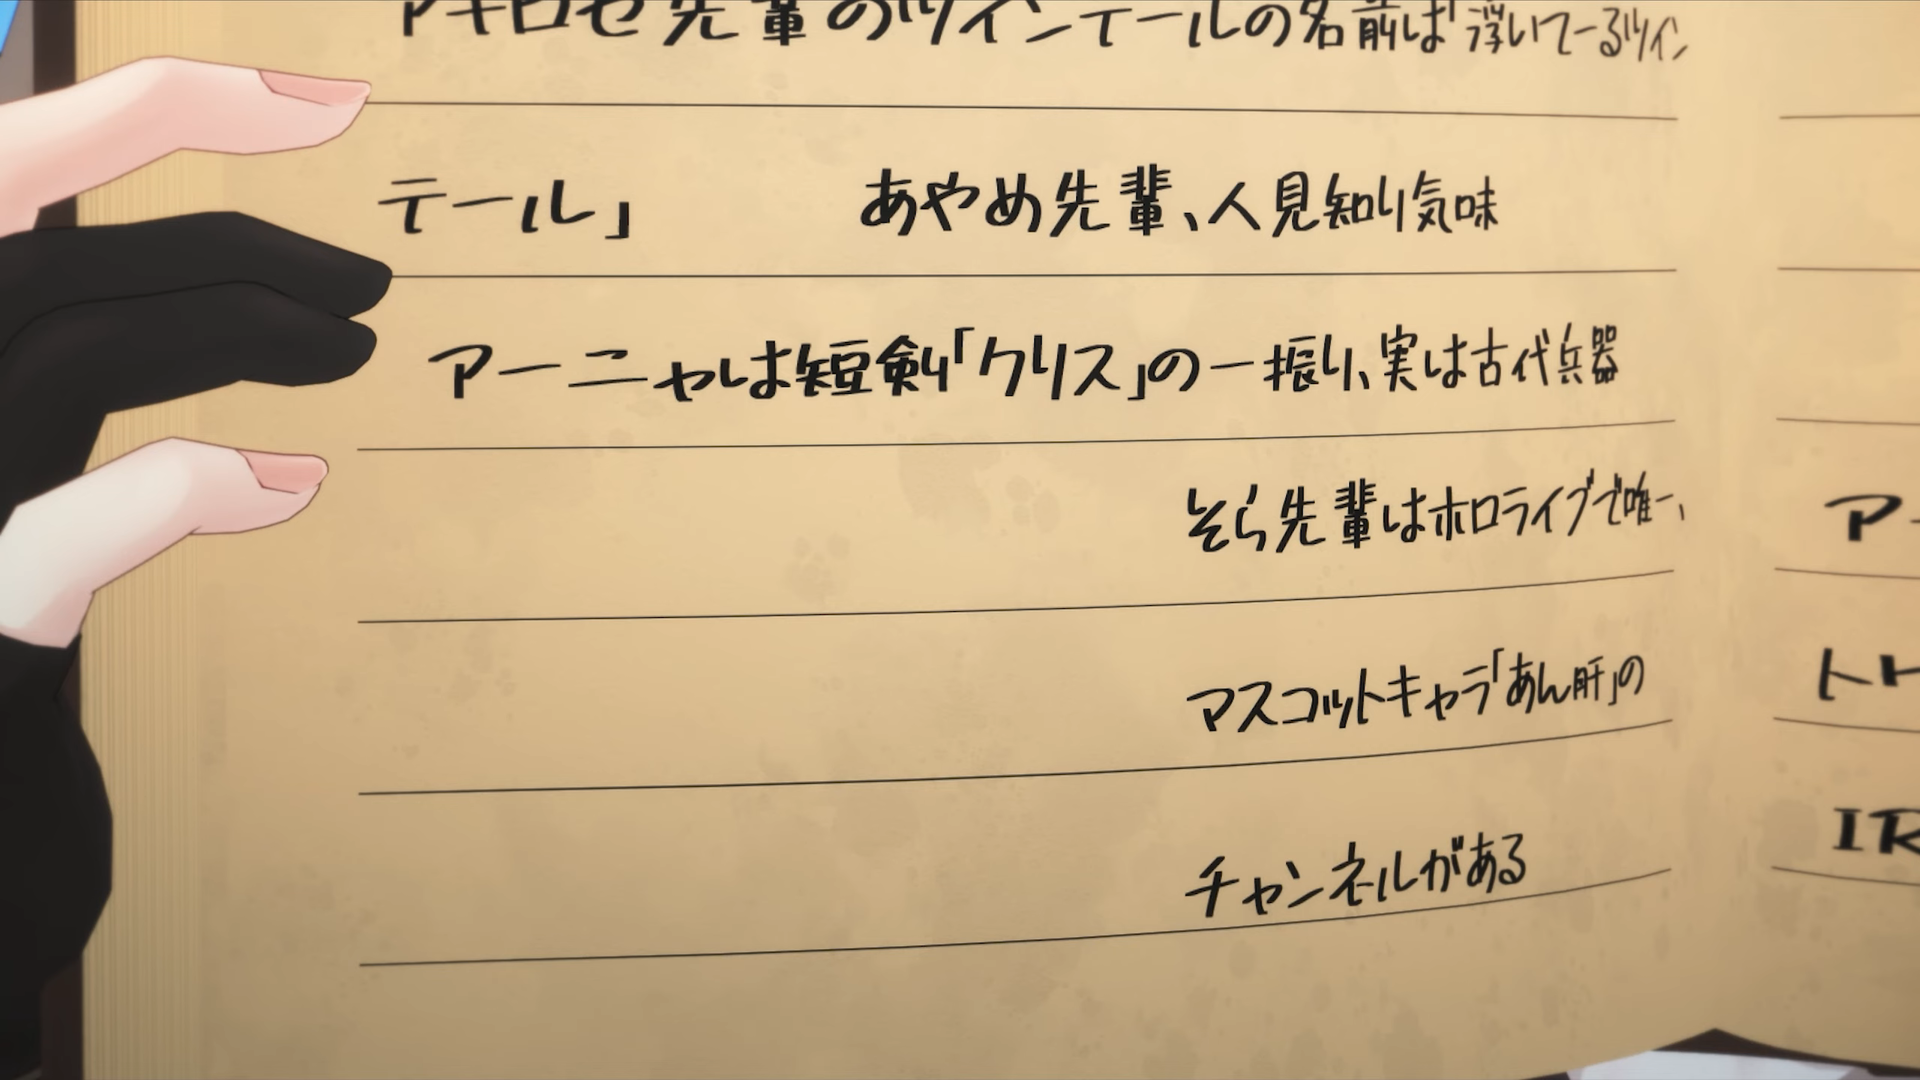 アキロゼ先輩のツインテールの名前は「浮いてーるツイン
テール」　あやめ先輩、人見知り気味
アーニャは短剣「クリス」の一振り、実は古代兵器
そら先輩はホロライブで唯一、
マスコットキャラ「あん肝」の
チャンネルがある
ア
トト
IR